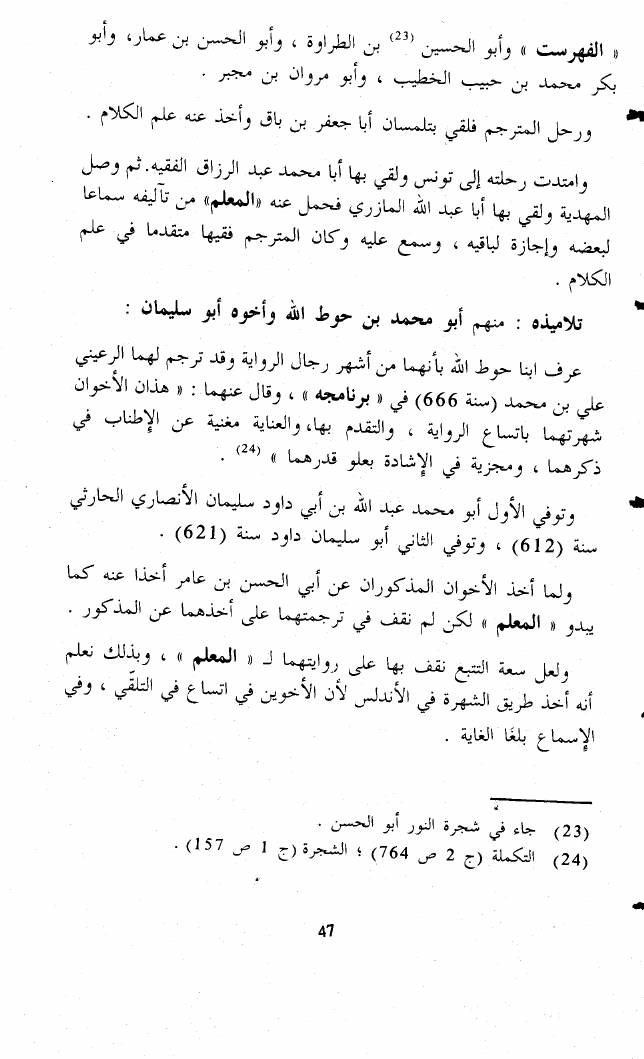 « الفهرست » وأبو الحسين (23) بن الطراوة ، وأبو الحسن بن عمار، وأبو
بكر محمد بن حبيب الخطيب ، وأبو مروان بن مجبر .
ورحل المترجم فلقي بتلمسان أبا جعفر بن باق وأخذ عنه علم الكلام .
وامتدت رحلته إلى تونس ولقي بها أبا محمد عبد الرزاق الفقيه. ثم وصل
المهدية ولقي بها أبا عبد الله المازري فحمل عنه «المعلم» من تآليفه سماعا
لبعضه وإجازة لباقيه ، وسمع عليه وكان المترجم فقيها متقدما في علم
الكلام .
تلاميذه : منهم أبو محمد بن حوط الله وأخوه أبو سليمان :
عرف ابنا حوط الله بأنهما من أشهر رجال الرواية وقد ترجم لهما الرعيني
علي بن محمد (سنة 666) في « برنامجه » ، وقال عنهما : « هذان الأخوان
شهرتهما باتساع الرواية ، والتقدم بها، والعناية مغنية عن الإطناب في
ذكرهما ، ومجزية في الإشادة بعلو قدرهما » (24) .
وتوفي الأول أبو محمد عبد الله بن أبي داود سليمان الأنصاري الحارثي
سنة (612) ، وتوفي الثاني أبو سليمان داود سنة (621) .
ولما أخذ الأخوان المذكوران عن أبي الحسن بن عامر أخذا عنه كما
يبدو « المعلم » لكن لم نقف في ترجمتهما على أخذهما عن المذكور .
ولعل سعة التتبع نقف بها على روايتهما لـ « المعلم » ، وبذلك نعلم
أنه أخذ طريق الشهرة في الأندلس لأن الأخوين في اتساع في التلقّي ، وفي
الإسماع بلغا الغاية .
(23) جاء في شجرة النور أبو الحسن .
(24) التكملة (ج 2 ص 764) ؛ الشجرة (ج 1 ص 157) .
47